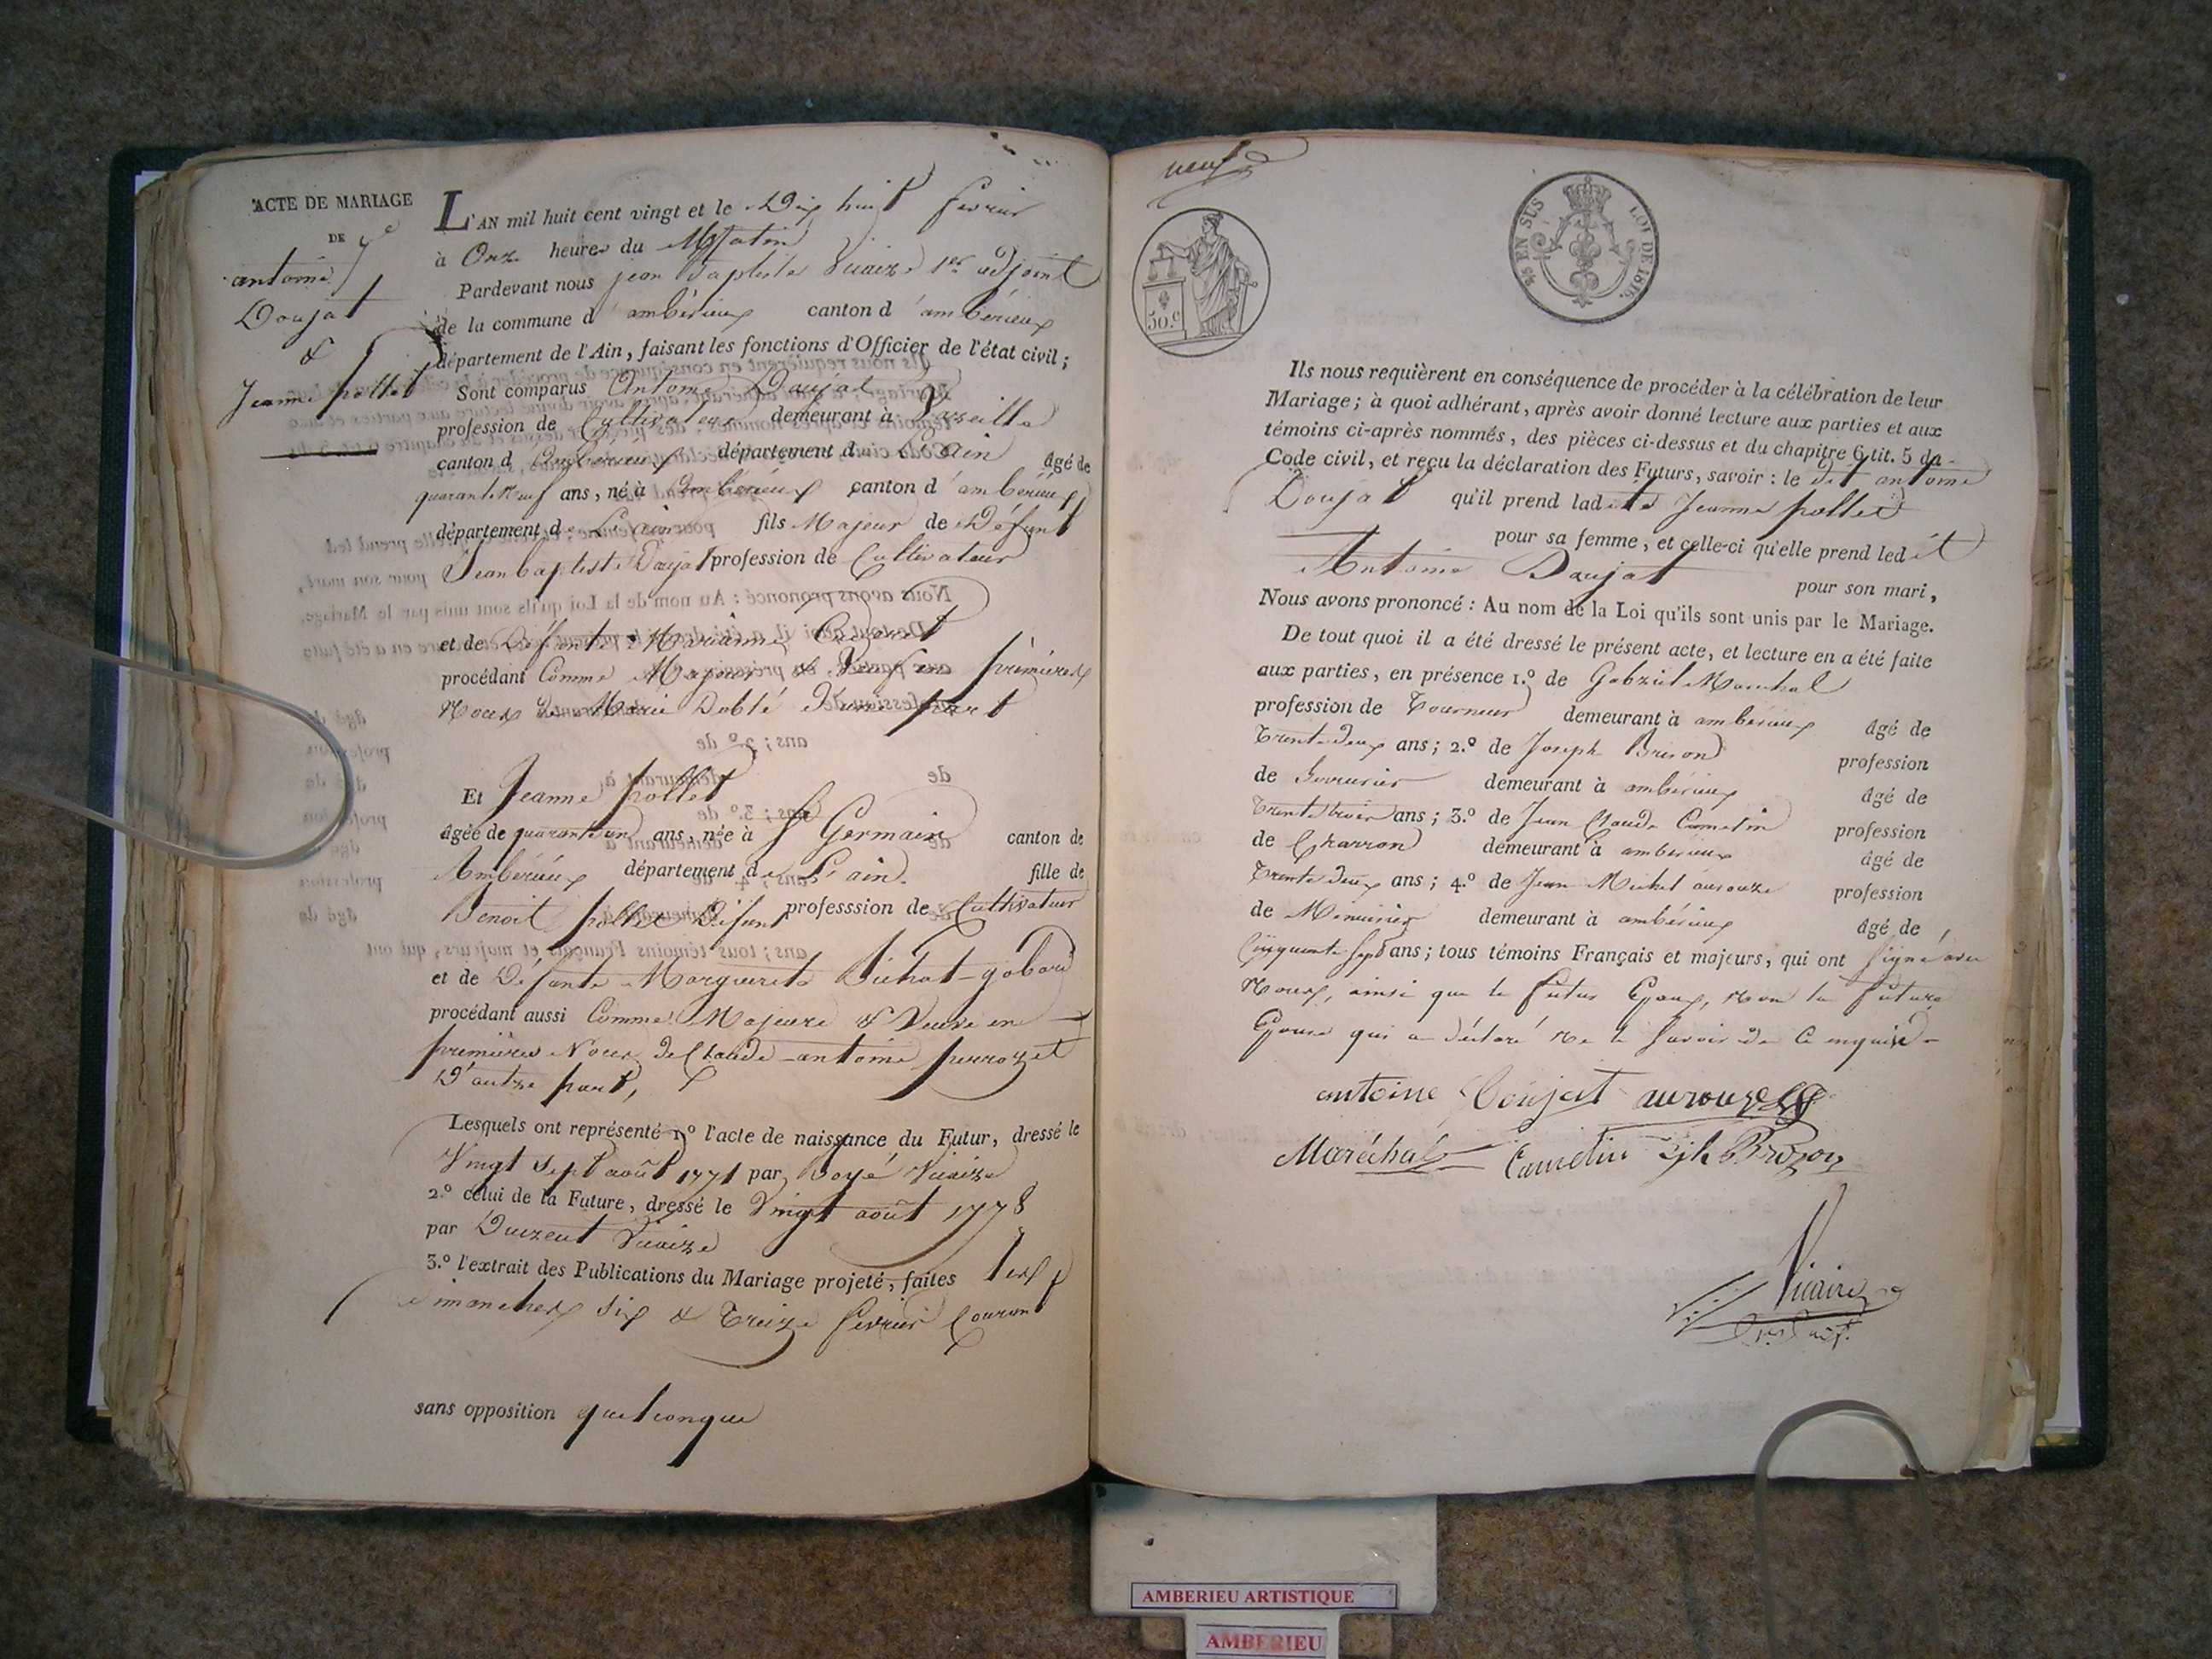 ACTE DE MARIAGE
DE
antoine
Doujat
&
Jeanne pollet
L'AN mil huit cent vingt et le Dix huit fevrier
à Onze heures du Matin
Pardevant nous jean Baptiste Vicaire 1er adjoint
de la commune d'ambérieux canton d'ambérieux
département de l'Ain, faisant les fonctions d'Officier de l'état civil;
Sont comparus Antoine Doujat
profession de Cultivateur demeurant à Vareille
canton d'Ambérieux département de L'ain âgé de
quarante neuf ans, né à Ambérieux canton d'ambérieux
département de L'ain fils Majeur de Défunt
Jean baptiste Doujat profession de Cultivateur
et de Défunte Marianne
procédant Comme Majeur & Veuf en premières
Noces de Marie Doblé D'une part
Et Jeanne pollet
âgée de quarante un ans, née à St Germain canton de
Ambérieux département de L'ain. fille de
Benoit pollet Défunt professsion de Cultivateur
et de Défunte Marguerite Bichat-gobard
procédant aussi Comme Majeure & Veuve en
premières Noces de Claude-antoine perrozet
D'autre part,
Lesquels ont représenté 1.º l'acte de naissance du Futur, dressé le
Vingt Sept août 1771 par Boyé Vicaire
2.º celui de la Future, dressé le Vingt août 1778
par Vicaire
3.º l'extrait des Publications du Mariage projeté, faites les
dimanches Six & Treize fevrier Courant
sans opposition quelconque
neuf
50.c
EN SUS LOI DE 1816.
Ils nous requièrent en conséquence de procéder à la célébration de leur
Mariage; à quoi adhérant, après avoir donné lecture aux parties et aux
témoins ci-après nommés, des pièces ci-dessus et du chapitre 6 tit. 5 du
Code civil, et reçu la déclaration des Futurs, savoir: le dit antoine
Doujat qu'il prend ladite Jeanne pollet
pour sa femme, et celle-ci qu'elle prend ledit
Antoine Doujat pour son mari,
Nous avons prononcé: Au nom de la Loi qu'ils sont unis par le Mariage.
De tout quoi il a été dressé le présent acte, et lecture en a été faite
aux parties, en présence 1.º de Gabriel Marechal
profession de Tourneur demeurant à ambérieux âgé de
Trente deux ans; 2.º de Joseph Brison profession
de Serrurier demeurant à ambérieux âgé de
Trente trois ans; 3.º de Jean Claude Cametin profession
de Charron demeurant à ambérieux âgé de
Trente deux ans; 4.º de Jean Michel aurouze profession
de Menuisier demeurant à ambérieux âgé de
Cinquante Sept ans; tous témoins Français et majeurs, qui ont Signé avec
Nous, ainsi que le futur Epoux, Non la future
Epouse qui a déclaré Ne le Savoir de Ce enquise
antoine Doujat aurouze
Maréchal Cametin Jph Brison
Vicaire
AMBERIEU ARTISTIQUE
AMBERIEU